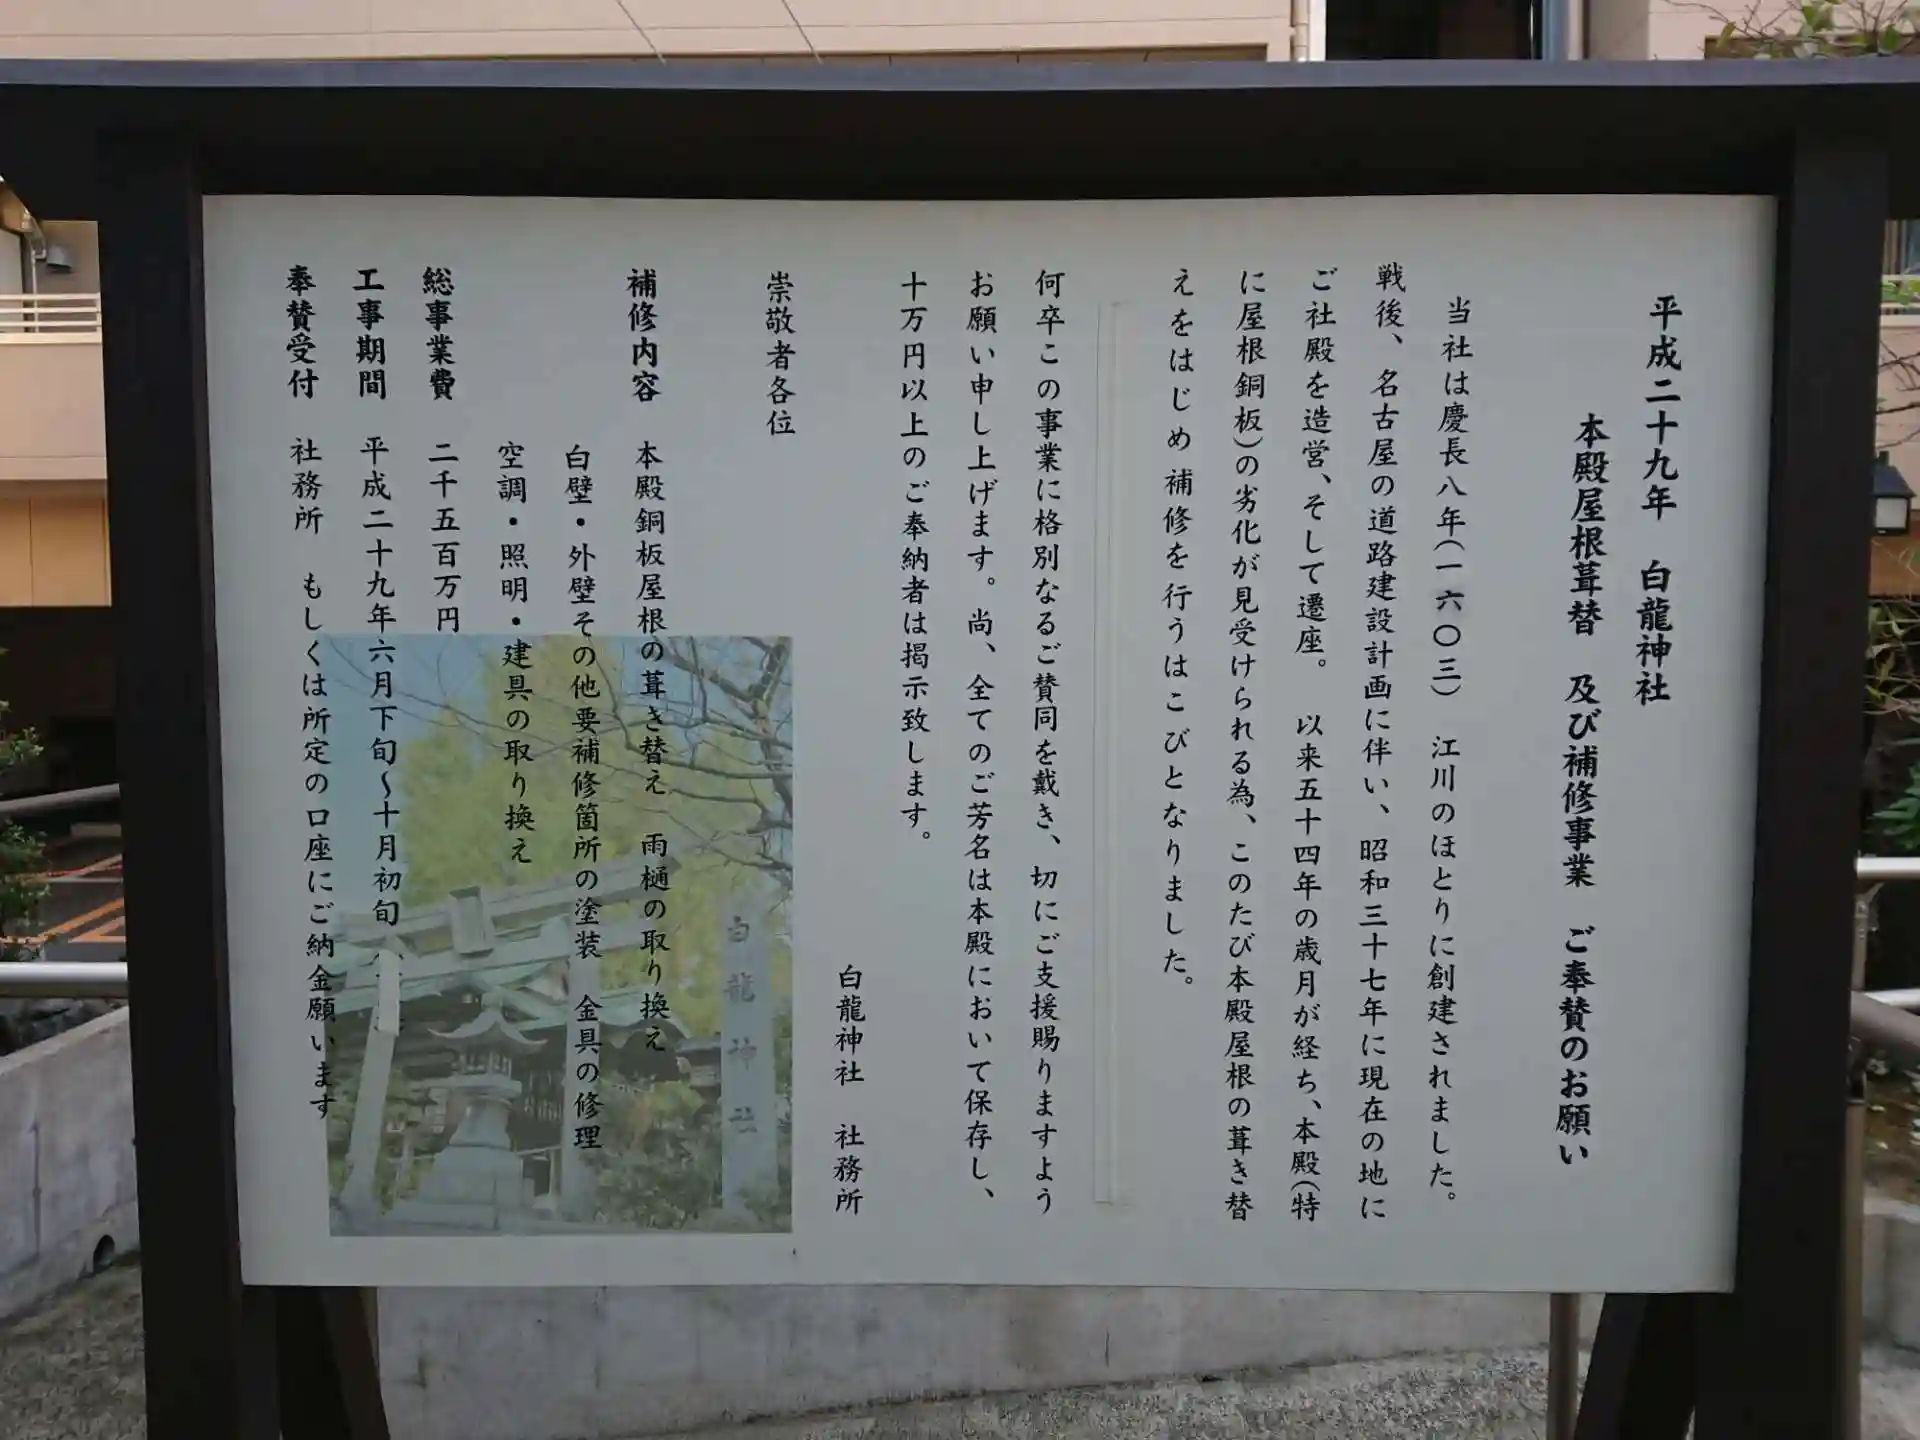 平成二十九年　白龍神社
本殿屋根葺替　及び補修事業　ご奉賛のお願い
当社は慶長八年（一六〇三）　江川のほとりに創建されました。
戦後、名古屋の道路建設計画に伴い、昭和三十七年に現在の地に
ご社殿を造営、そして遷座。　以来五十四年の歳月が経ち、本殿（特
に屋根銅板）の劣化が見受けられる為、このたび本殿屋根の葺き替
えをはじめ補修を行うはこびとなりました。
何卒この事業に格別なるご賛同を戴き、切にご支援賜りますよう
お願い申し上げます。尚、全てのご芳名は本殿において保存し、
十万円以上のご奉納者は掲示致します。
白龍神社　社務所
崇敬者各位
補修内容　本殿銅板屋根の葺き替え　雨樋の取り換え
白壁・外壁その他要補修箇所の塗装　金具の修理
空調・照明・建具の取り換え
総事業費　二千五百万円
工事期間　平成二十九年六月下旬～十月初旬
奉賛受付　社務所　もしくは所定の口座にご納金願います
白龍神社